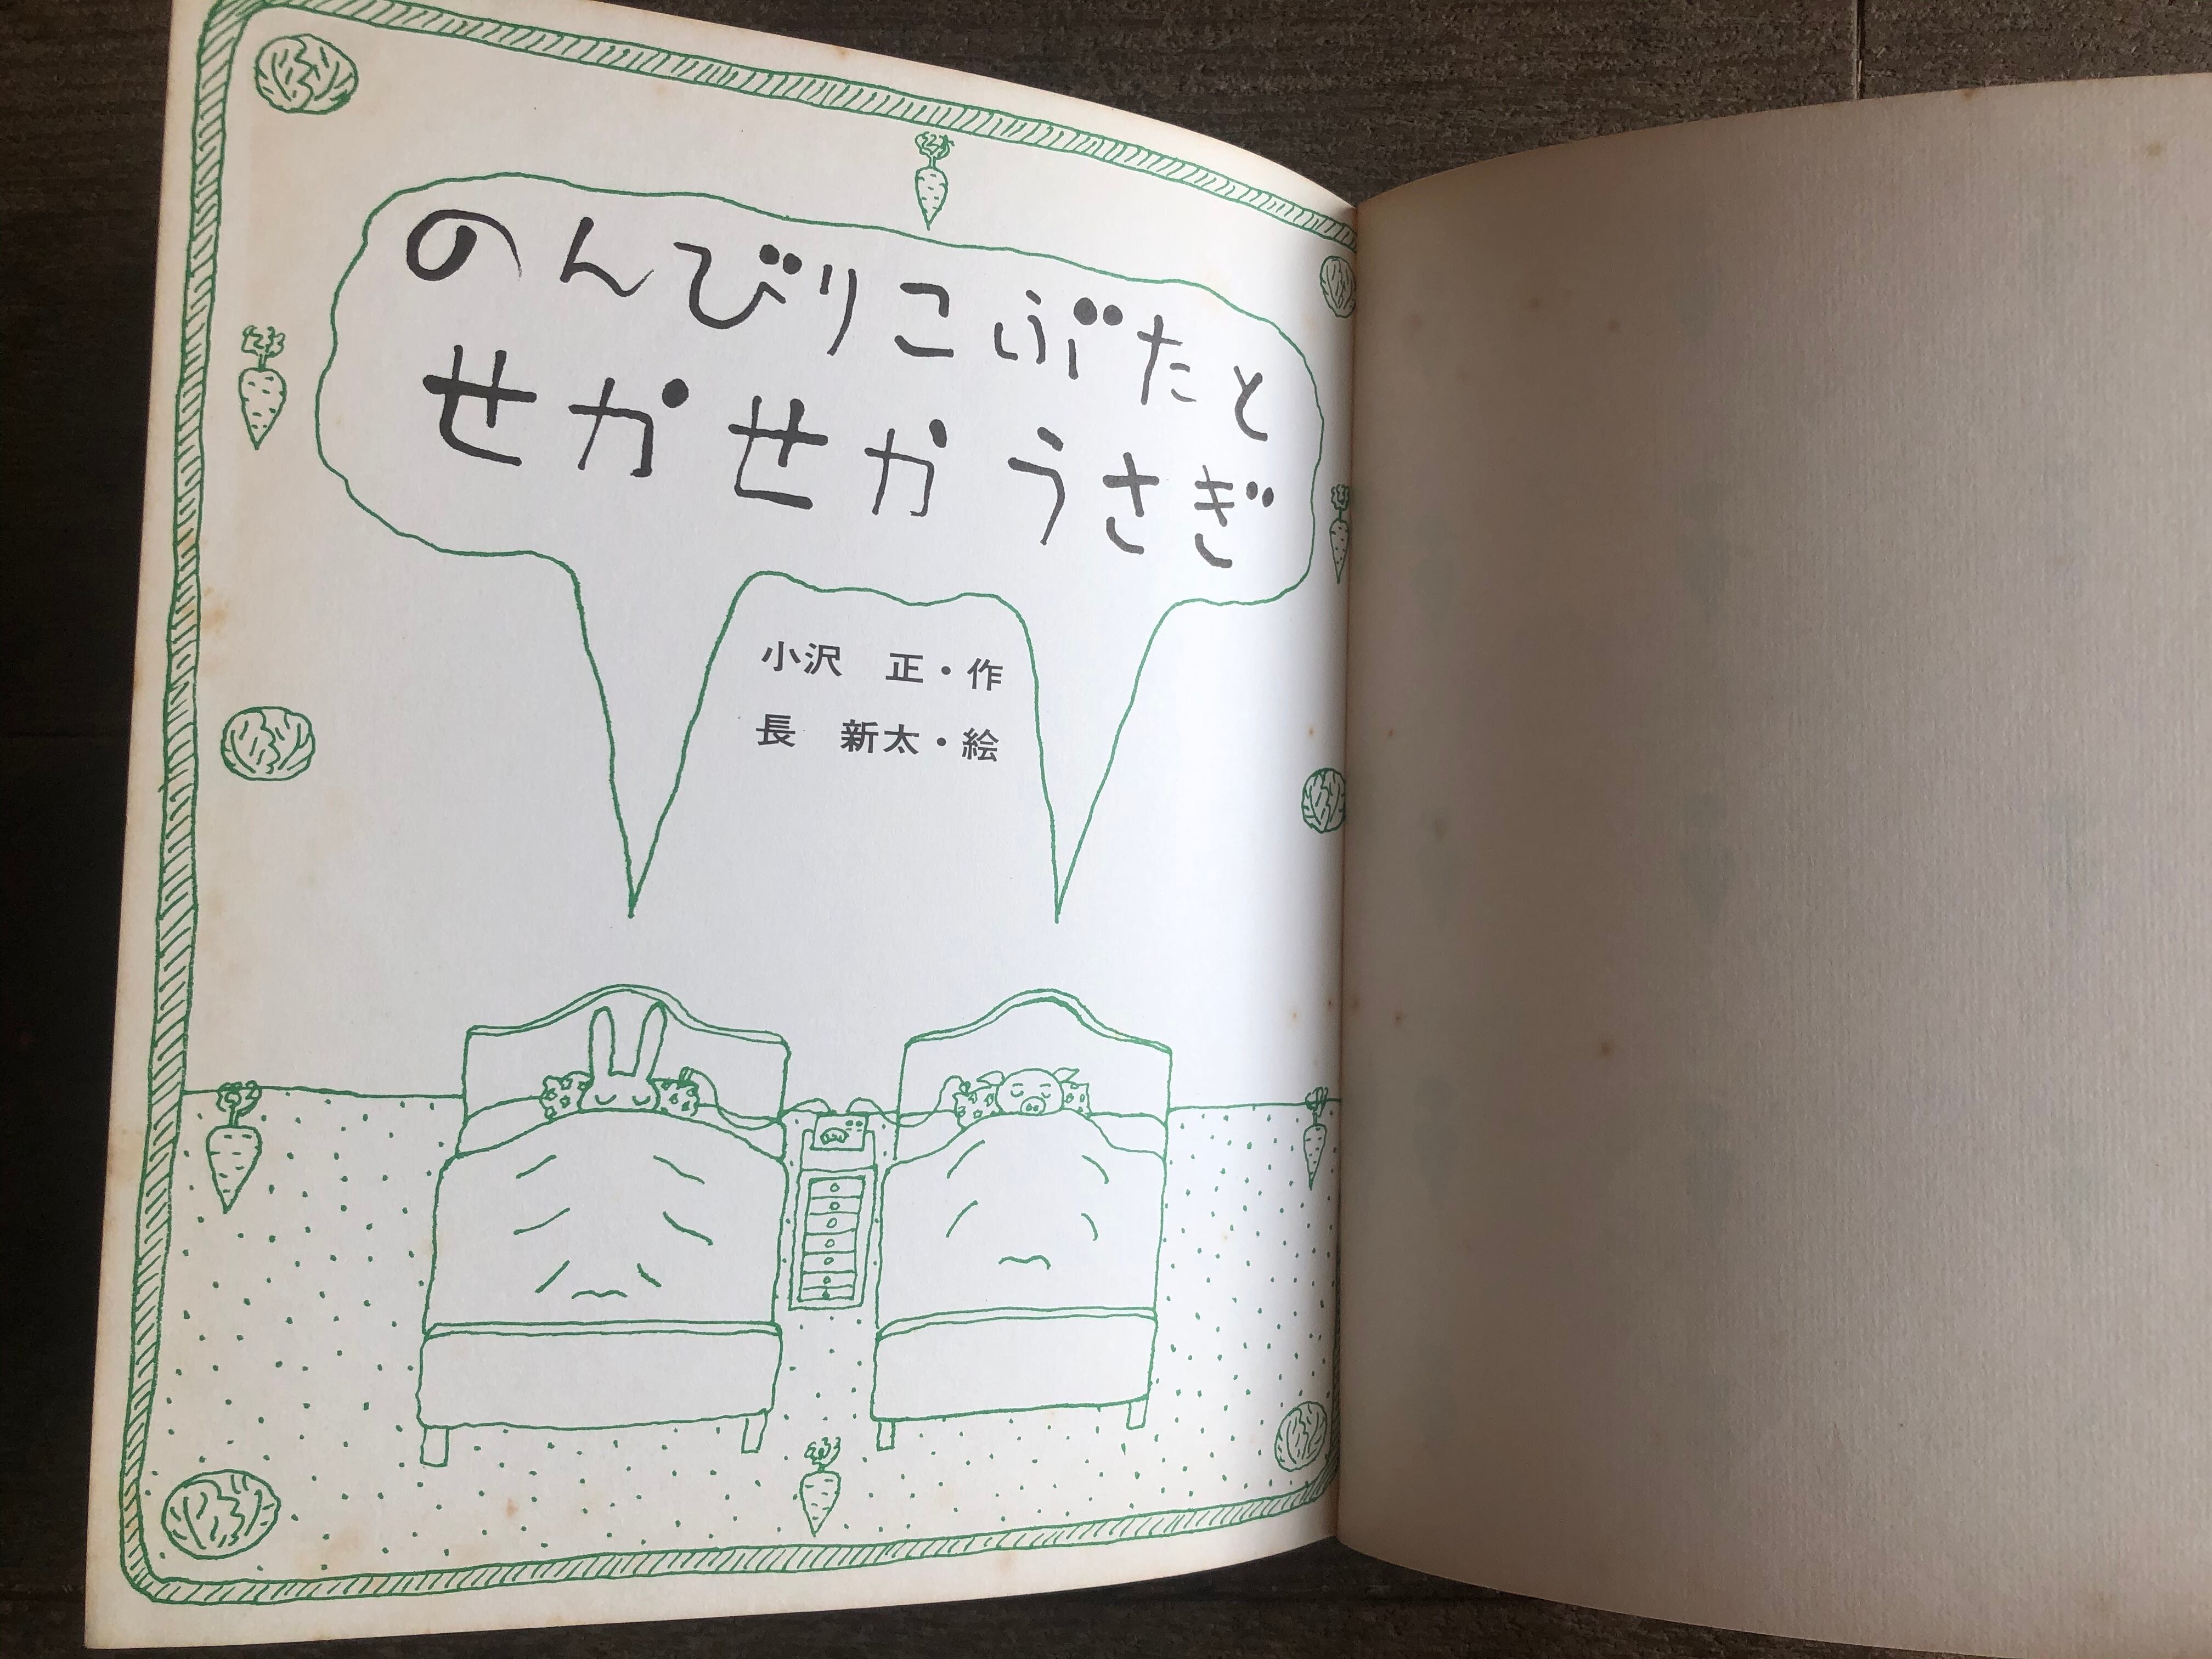 のんびりこぶたと
せかせかうさぎ
小沢　正・作
長　新太・絵